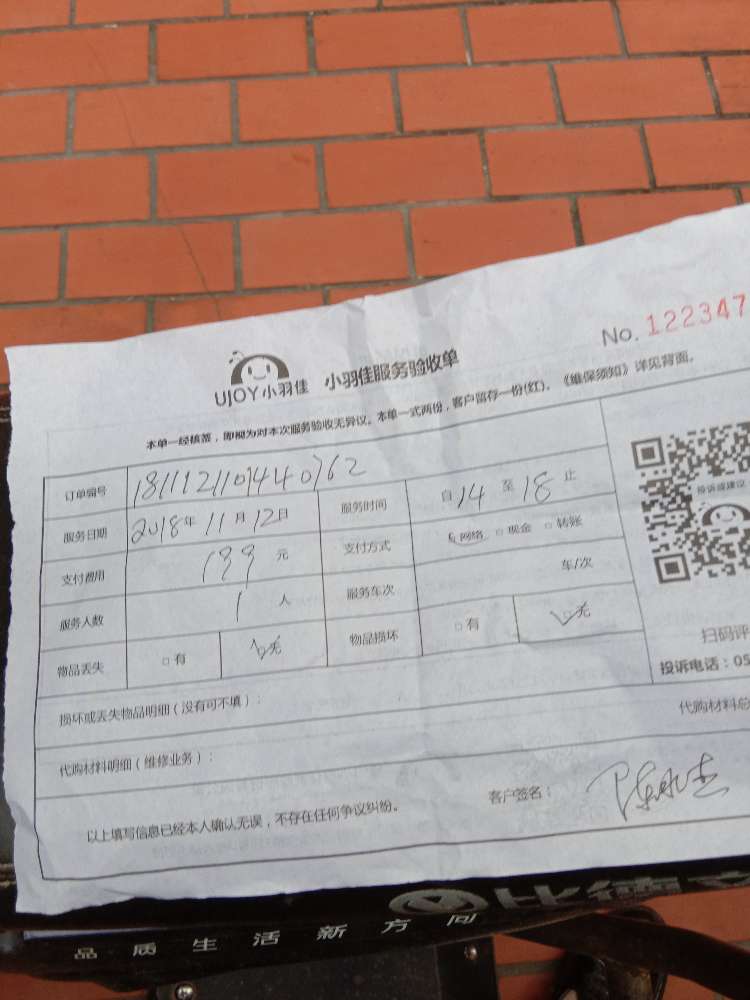 No. 122347
UJOY小羽佳 小羽佳服务验收单
本单一经核签，即视为对本次服务验收无异议。本单一式两份，客户留存一份(红)。《维保须知》详见背面。
订单编号 181112110144 0762 服务时间 自 14 至 18 止
服务日期 2018年 11月 12日 支付方式 网络 □ 现金 □ 转账
支付费用 199 元 服务车次 车/次
服务人数 1 人 物品损坏 □有 无
物品丢失 □有 无
投诉或建议
扫码评
投诉电话：05
损坏或丢失物品明细（没有可不填）：
代购材料总
代购材料明细（维修业务）：
以上填写信息已经本人确认无误，不存在任何争议纠纷。 客户签名： 陈永杰
比德文
品质生活新方向